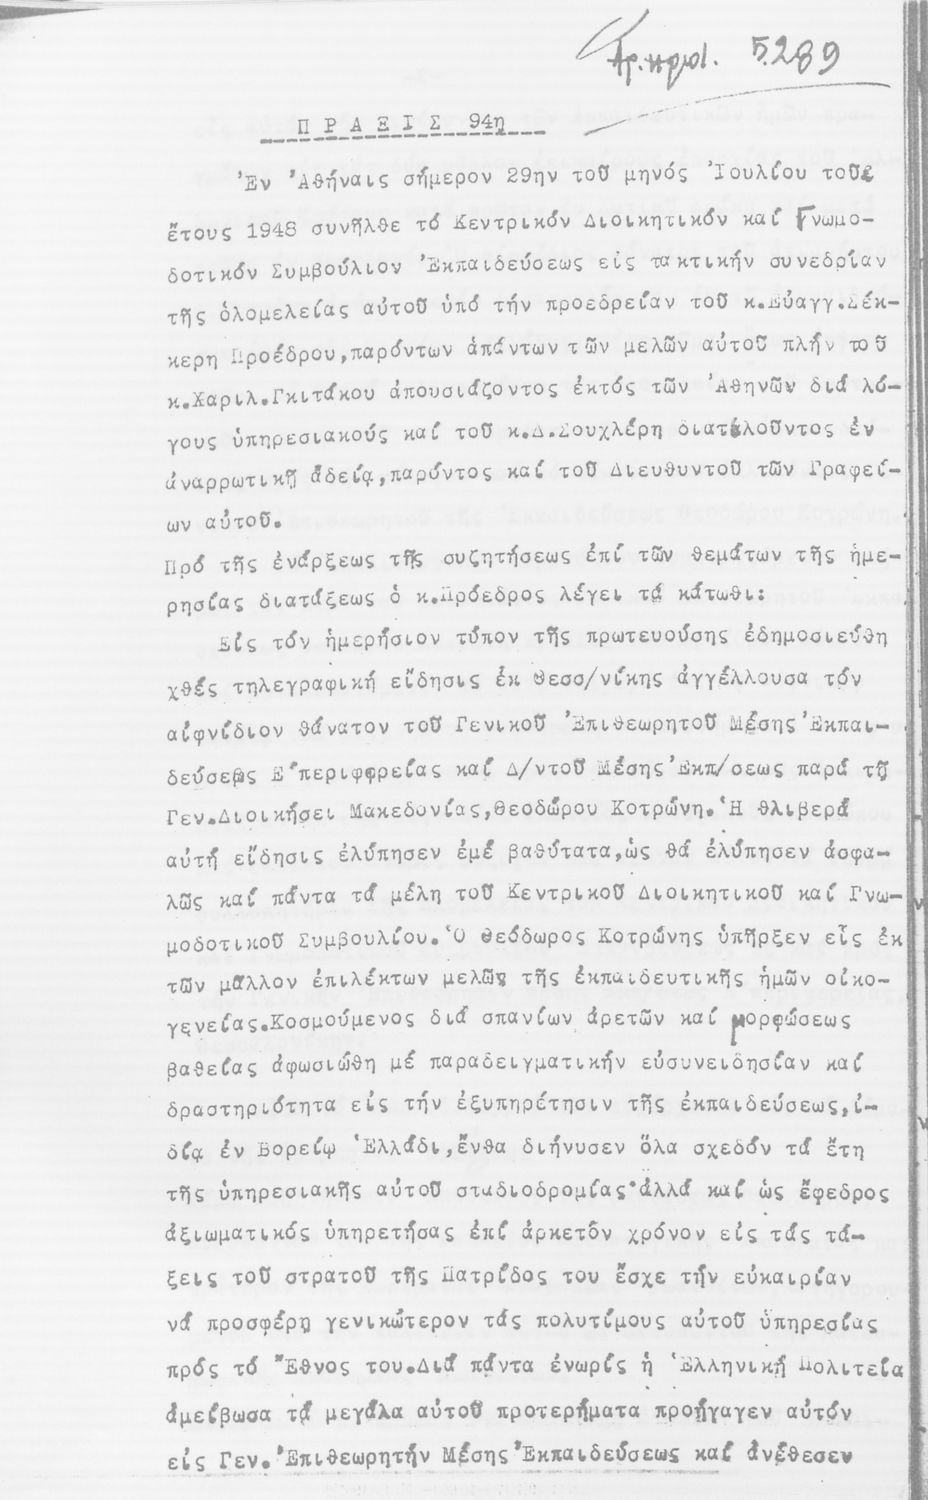 Ἀρ. πρωτ. 5.289
ΠΡΑΞΙΣ 94η
Ἐν Ἀθήναις σήμερον 29ην τοῦ μηνός Ἰουλίου τοῦ
ἔτους 1948 συνῆλθε τό Κεντρικόν Διοικητικόν καί Γνωμο-
δοτικόν Συμβούλιον Ἐκπαιδεύσεως εἰς τακτικήν συνεδρίαν
τῆς ὁλομελείας αὐτοῦ ὑπό τήν προεδρείαν τοῦ κ.Εὐαγγ.Σέκ-
κερη Προέδρου,παρόντων ἁπάντων τῶν μελῶν αὐτοῦ πλήν τοῦ
κ.Χαριλ.Γκιτάκου ἀπουσιάζοντος ἐκτός τῶν Ἀθηνῶν διά λό-
γους ὑπηρεσιακούς καί τοῦ κ.Δ.Σουχλέρη διατελοῦντος ἐν
ἀναρρωτικῇ ἀδείᾳ,παρόντος καί τοῦ Διευθυντοῦ τῶν Γραφεί-
ων αὐτοῦ.
Πρό τῆς ἐνάρξεως τῆς συζητήσεως ἐπί τῶν θεμάτων τῆς ἡμε-
ρησίας διατάξεως ὁ κ.Πρόεδρος λέγει τά κάτωθι:
Εἰς τόν ἡμερήσιον τύπον τῆς πρωτευούσης ἐδημοσιεύθη
χθές τηλεγραφική εἴδησις ἐκ Θεσσ/νίκης ἀγγέλλουσα τόν
αἰφνίδιον θάνατον τοῦ Γενικοῦ Ἐπιθεωρητοῦ Μέσης Ἐκπαι-
δεύσεως Ε΄περιφερείας καί Δ/ντοῦ Μέσης Ἐκπ/σεως παρά τῇ
Γεν.Διοικήσει Μακεδονίας,Θεοδώρου Κοτρώνη.Ἡ θλιβερά
αὐτή εἴδησις ἐλύπησεν ἐμέ βαθύτατα,ὡς θά ἐλύπησεν ἀσφα-
λῶς καί πάντα τά μέλη τοῦ Κεντρικοῦ Διοικητικοῦ καί Γνω-
μοδοτικοῦ Συμβουλίου.Ὁ Θεόδωρος Κοτρώνης ὑπῆρξεν εἷς ἐκ
τῶν μᾶλλον ἐπιλέκτων μελῶν τῆς ἐκπαιδευτικῆς ἡμῶν οἰκο-
γενείας.Κοσμούμενος διά σπανίων ἀρετῶν καί μορφώσεως
βαθείας ἀφωσιώθη μέ παραδειγματικήν εὐσυνειδησίαν καί
δραστηριότητα εἰς τήν ἐξυπηρέτησιν τῆς ἐκπαιδεύσεως,ἰ-
δίᾳ ἐν Βορείῳ Ἑλλάδι,ἔνθα διήνυσεν ὅλα σχεδόν τά ἔτη
τῆς ὑπηρεσιακῆς αὐτοῦ σταδιοδρομίας·ἀλλά καί ὡς ἔφεδρος
ἀξιωματικός ὑπηρετήσας ἐπί ἀρκετόν χρόνον εἰς τάς τά-
ξεις τοῦ στρατοῦ τῆς Πατρίδος του ἔσχε τήν εὐκαιρίαν
νά προσφέρῃ γενικώτερον τάς πολυτίμους αὐτοῦ ὑπηρεσίας
πρός τό Ἔθνος του.Διά πάντα ἐνωρίς ἡ Ἑλληνική Πολιτεία
ἀμείβωσα τά μεγάλα αὐτοῦ προτερήματα προήγαγεν αὐτόν
εἰς Γεν.Ἐπιθεωρητήν Μέσης Ἐκπαιδεύσεως καί ἀνέθεσεν